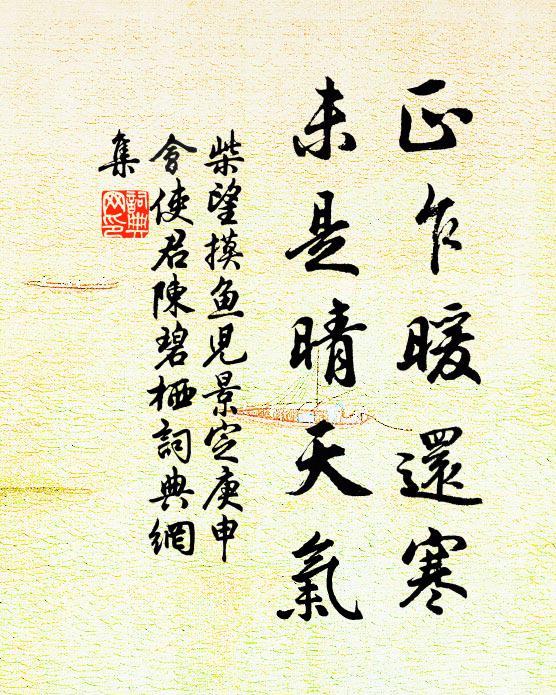 正乍暖還寒
未是晴天氣
柴望摸魚兒景定庚申
會使君陳碧栖詞典網
集
詞典網印